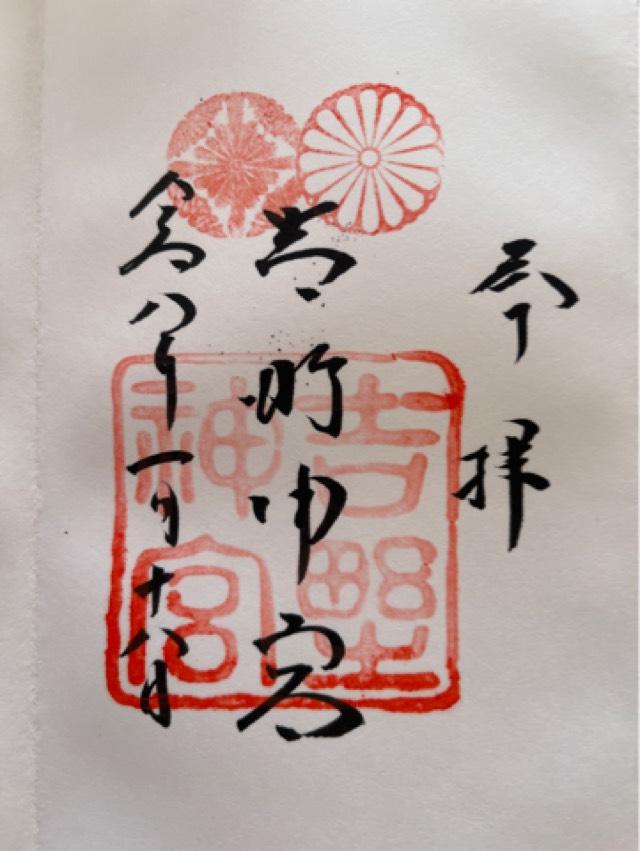 奉拝
吉野神宮
令和八年一月十八日
吉野神宮